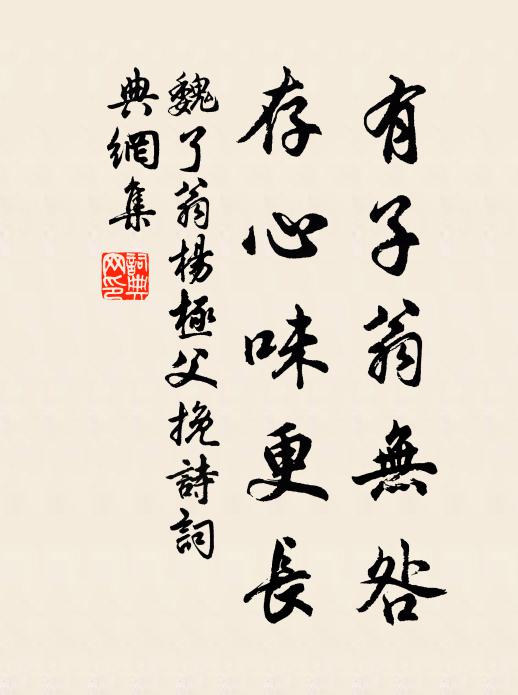 有子翁無咎
存心味更長
魏了翁楊極父挽詩詞
典網集
詞典網印